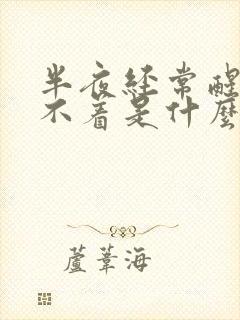 半夜经常醒
不着是什麼
蘆葦海